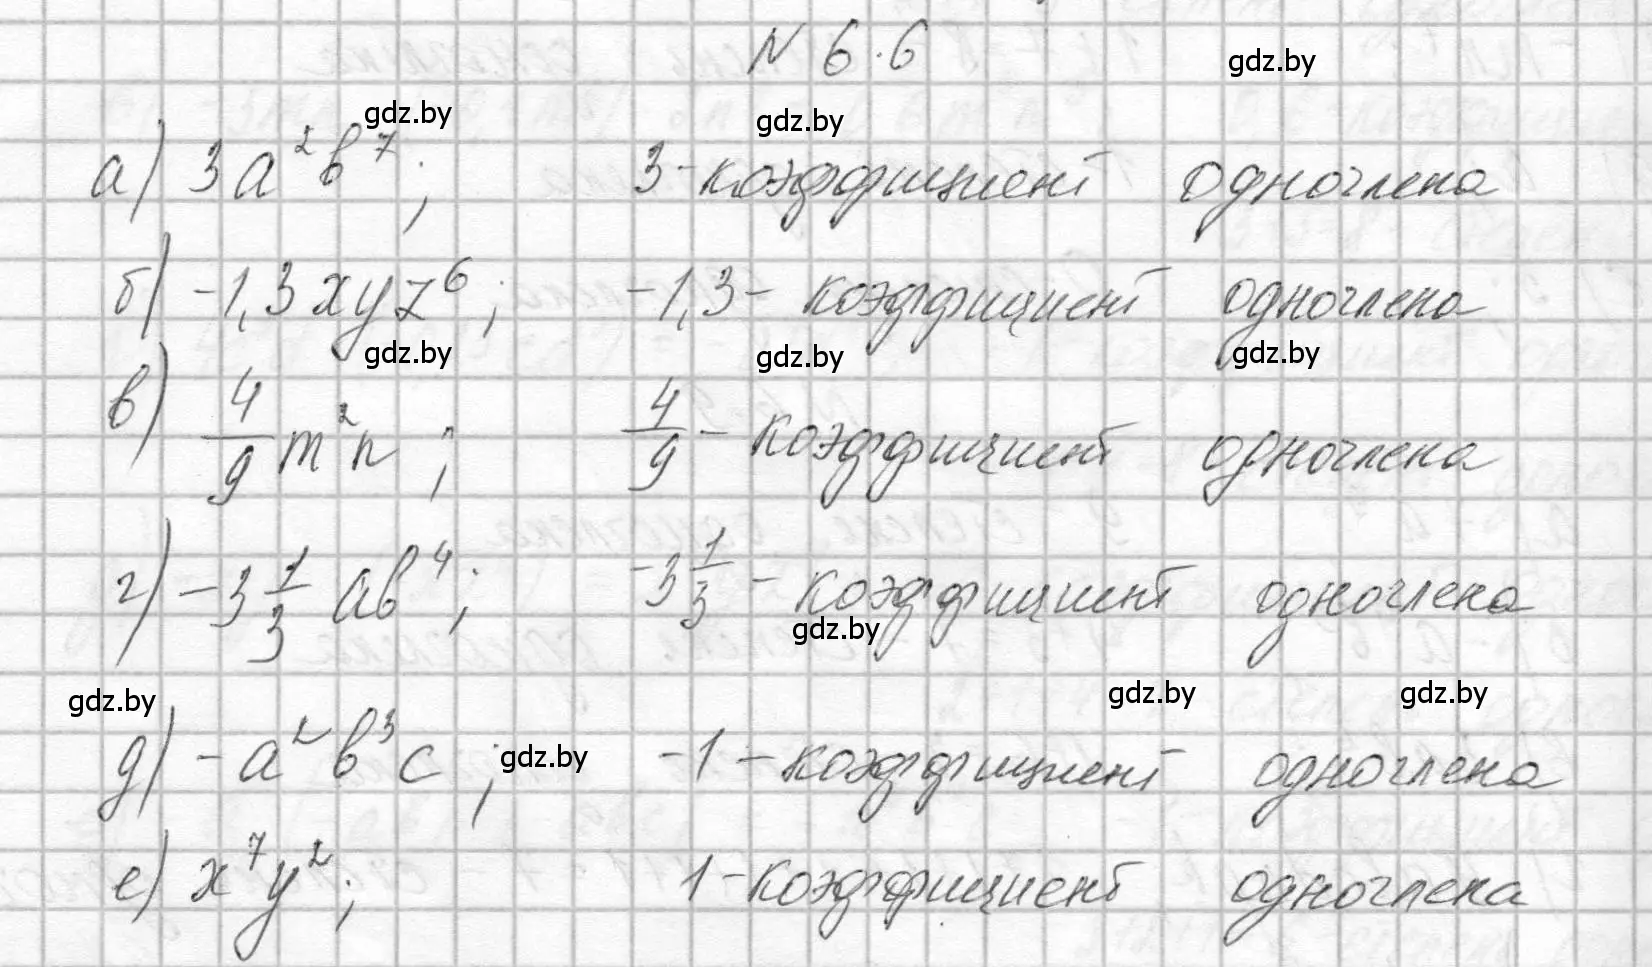 N 6.6
gdz.by
gdz.by gdz.by
а) 3a²b⁷; 3 - коэффициент одночлена
б) -1,3xyz⁶; -1,3 - коэффициент одночлена
gdz.by gdz.by gdz.by
в) 4/9 m²n; 4/9 - коэффициент одночлена
г) -3 1/3 ab⁴; -3 1/3 - коэффициент одночлена
gdz.by
gdz.by gdz.by gdz.by
д) -a²b³c; -1 - коэффициент одночлена
gdz.by
е) x⁷y²; 1 - коэффициент одночлена